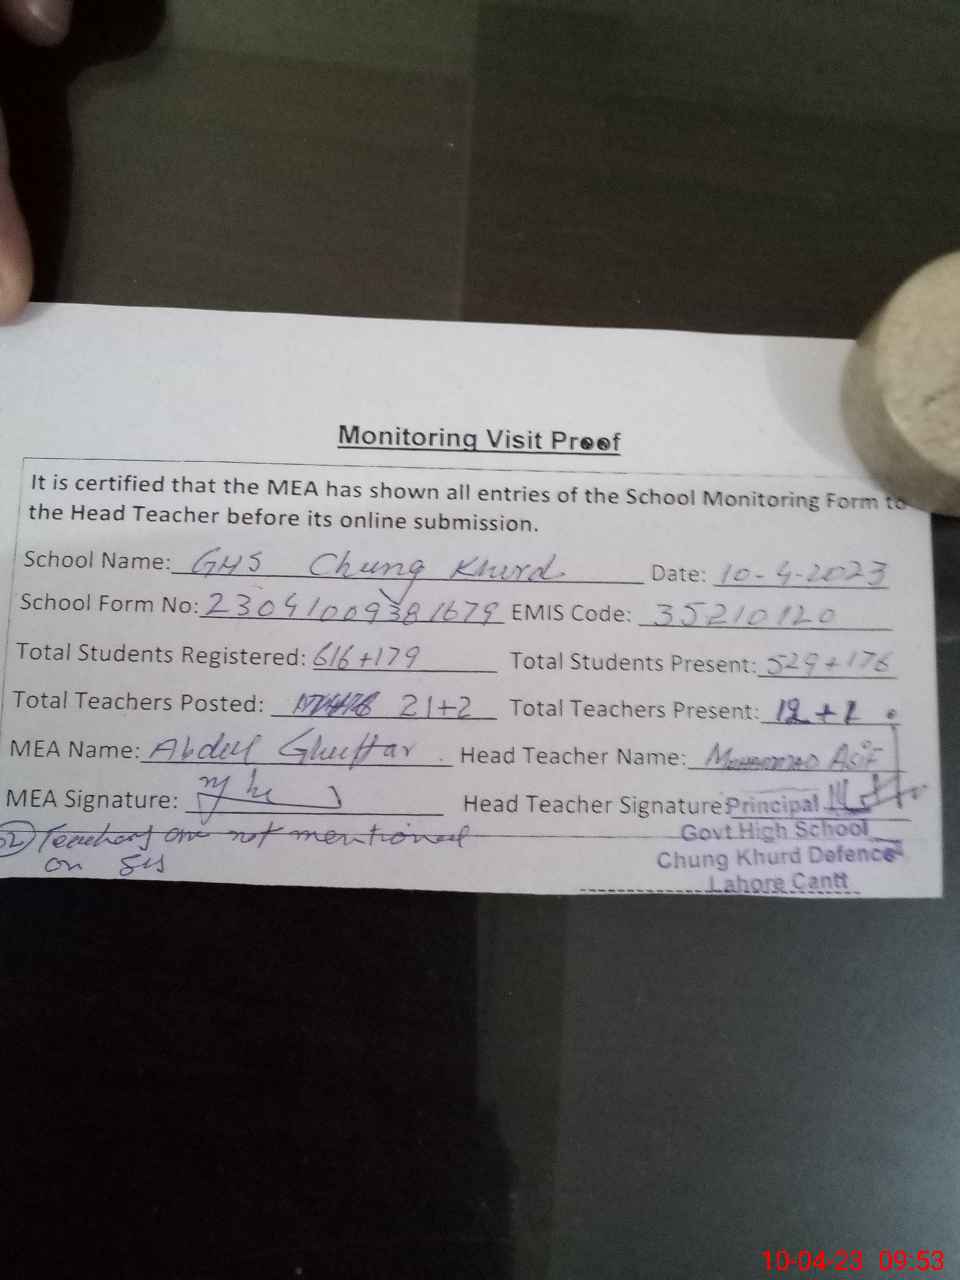 Monitoring Visit Proof
It is certified that the MEA has shown all entries of the School Monitoring Form to
the Head Teacher before its online submission.
School Name: GHS Chung Khurd Date: 10-4-2023
School Form No: 23041009381679 EMIS Code: 35210120
Total Students Registered: 616+179 Total Students Present: 529+176
Total Teachers Posted: 21+2 Total Teachers Present:
MEA Name: Abdul Ghuffar Head Teacher Name: Mohammad Asif
MEA Signature: Head Teacher Signature: Principal
Govt High School
Chung Khurd Defence
Lahore Cantt
02) Teachers are not mentioned
on SIS
10-04-23 09:53